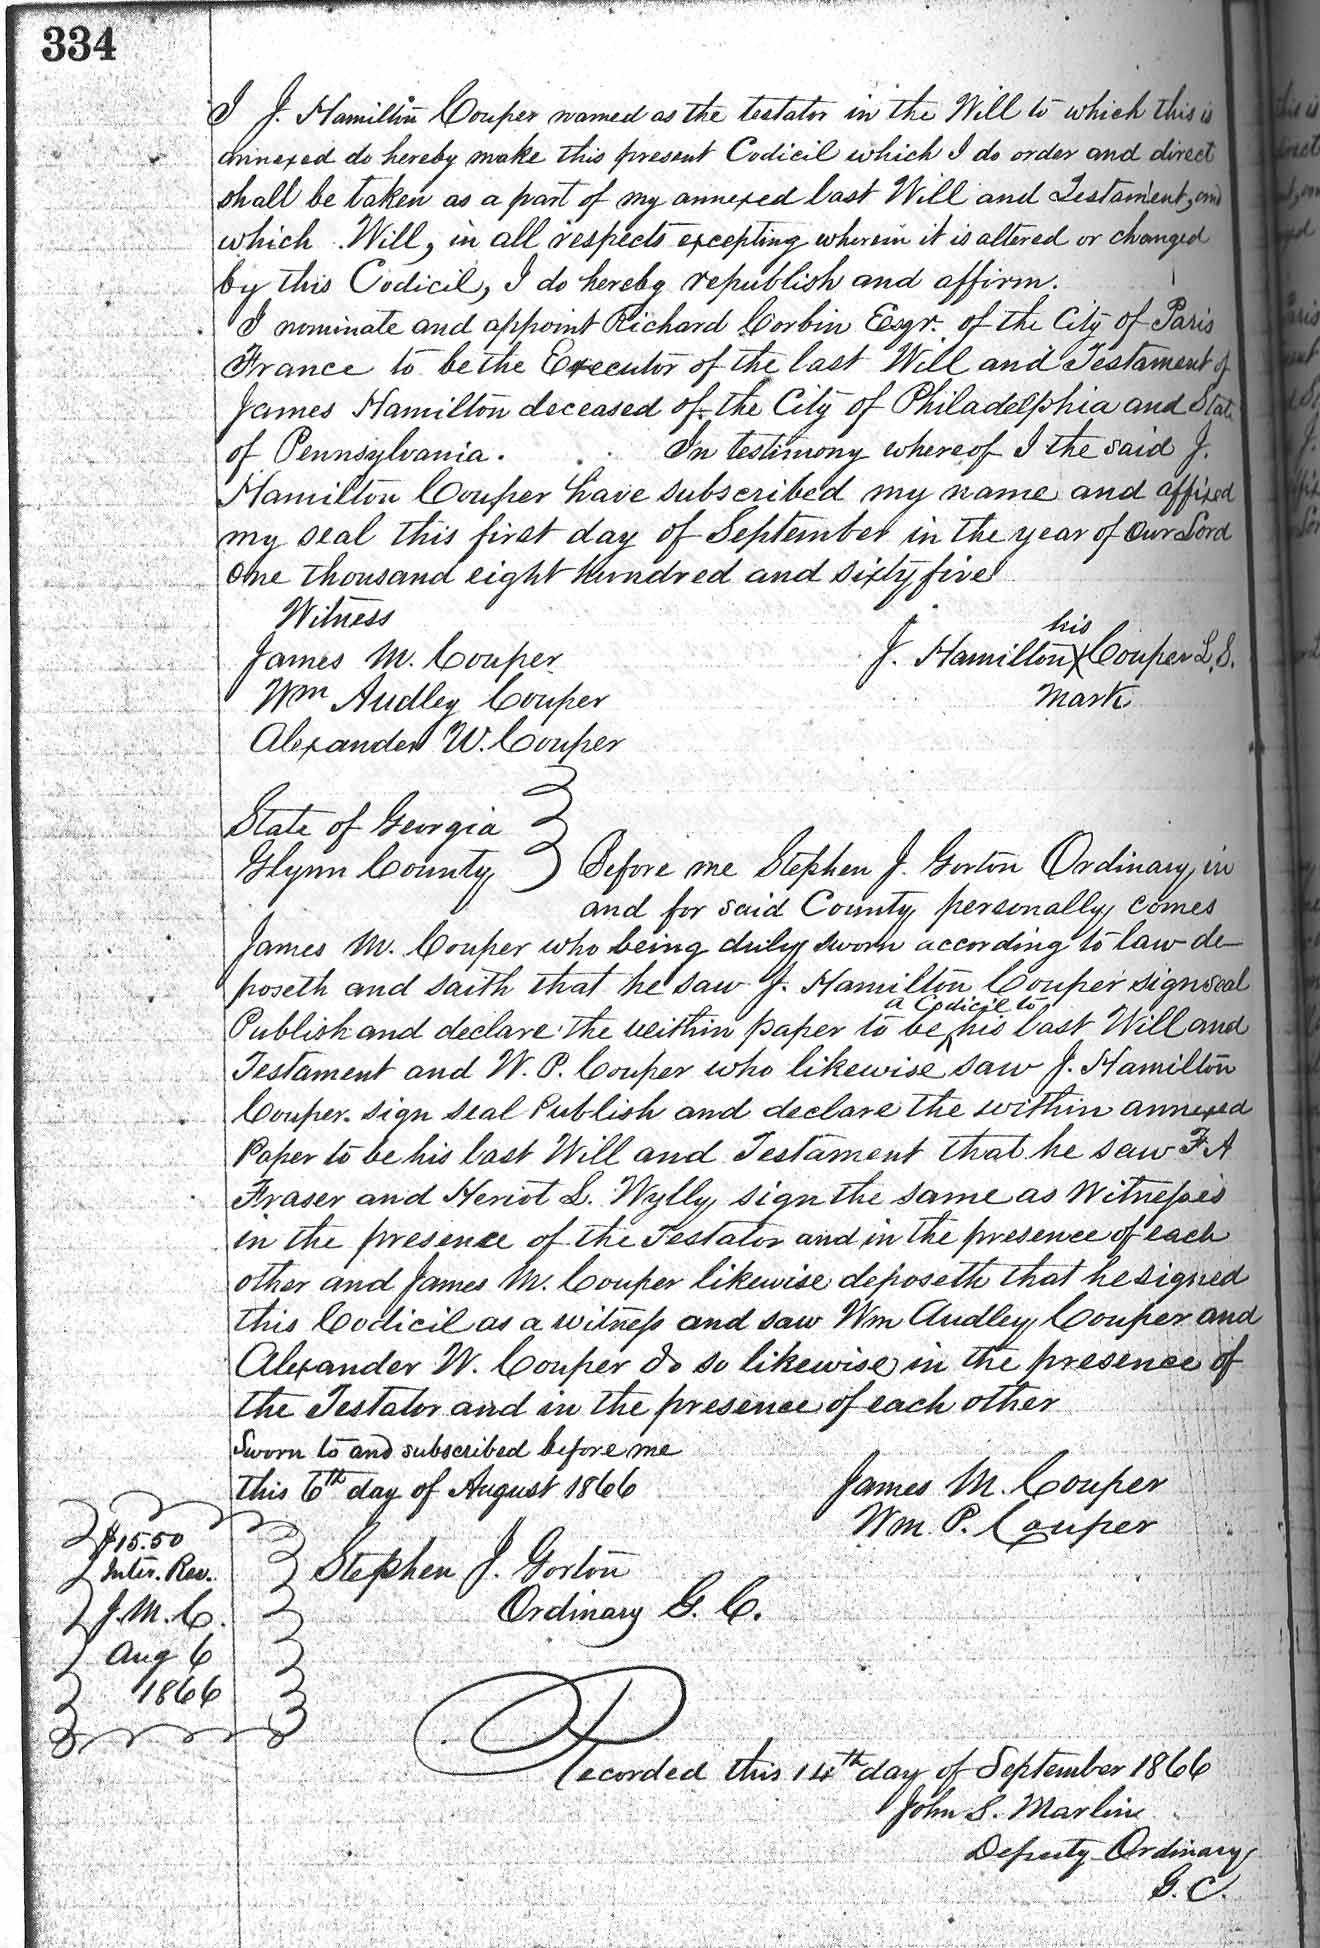 334
I J. Hamilton Couper named as the testator in the Will to which this is
annexed do hereby make this present Codicil which I do order and direct
shall be taken as a part of my annexed last Will and Testament, and
which Will, in all respects excepting wherein it is altered or changed
by this Codicil, I do hereby republish and affirm.
I nominate and appoint Richard Corbin Esqr. of the City of Paris
France to be the Executor of the last Will and Testament of
James Hamilton deceased of the City of Philadelphia and State
of Pennsylvania. In testimony whereof I the said J.
Hamilton Couper have subscribed my name and affixed
my seal this first day of September in the year of our Lord
One thousand eight hundred and sixty five
Witness
his
James M. Couper J. Hamilton X Couper L.S.
Wm Audley Couper mark
Alexander W. Couper
State of Georgia
Glynn County Before me Stephen J. Gorton Ordinary, in
and for said County personally comes
James M. Couper who being duly sworn according to law de-
poseth and saith that he saw J. Hamilton Couper sign seal
a Codicil to
Publish and declare the within paper to be ^ his last Will and
Testament and W. P. Couper who likewise saw J. Hamilton
Couper sign seal Publish and declare the within annexed
Paper to be his last Will and Testament that he saw F A
Fraser and Heriot L. Wylly sign the same as Witnesses
in the presence of the Testator and in the presence of each
other and James M. Couper likewise deposeth that he signed
this Codicil as a witness and saw Wm Audley Couper and
Alexander W. Couper do so likewise in the presence of
the Testator and in the presence of each other
Sworn to and subscribed before me
this 6th day of August 1866 James M. Couper
Wm P. Couper
Stephen J. Gorton
Ordinary G. C.
$15.50
Inter. Rev.
J. M. C.
Aug 6
1866
Recorded this 14th day of September 1866
John S. Marlin
Deputy Ordinary
G. C.